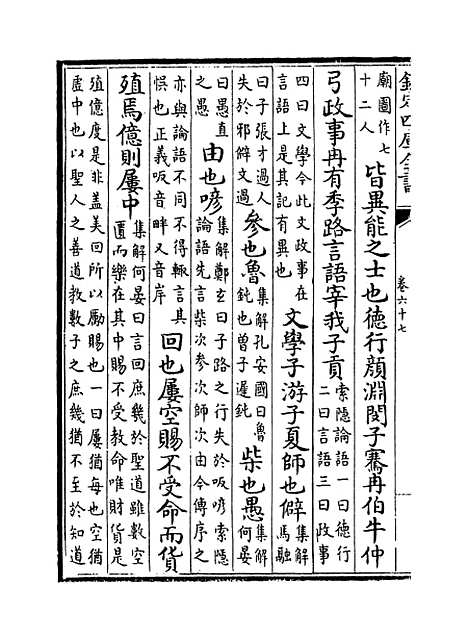 欽定四庫全書
卷六十七
廟圖作七
十二人
皆異能之士也德行顏淵閔子騫冉伯牛仲
弓政事冉有季路言語宰我子貢
索隱論語一曰德行
二曰言語三曰政事
四曰文學今此文政事在
言語上是其記有異也
文學子游子夏師也僻
集解
馬融
曰子張才過人
失於邪僻文過
參也魯
集解孔安國曰魯
鈍也曾子遲鈍
柴也愚
集解
何晏
曰愚直
之愚
由也喭
集解鄭玄曰子路之行失於吸喭索隱
論語先言柴次參次師次由今傳序之
亦與論語不同不得輒言其
悞也正義吸音畔又音岸
回也屢空賜不受命而貨
殖焉億則屢中
集解何晏曰言回庶幾於聖道雖數空
匱而樂在其中賜不受教命唯財貨是
殖億度是非蓋美回所以勵賜也一曰屢猶每也空猶
虛中也以聖人之善道教數子之庶幾猶不至於知道